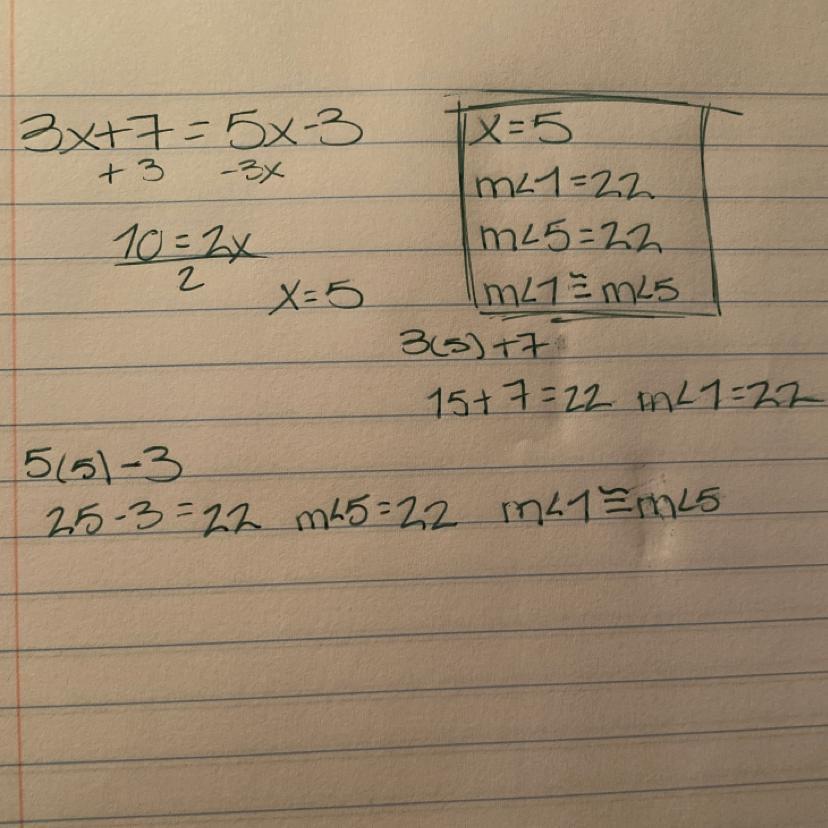 3x+7=5x-3
+3 -3x
10=2x
2
x=5
x=5
m<1=22
m<5=22
m<1≅m<5
3(5)+7
15+7=22 m<1=22
5(5)-3
25-3=22 m<5=22 m<1≅m<5